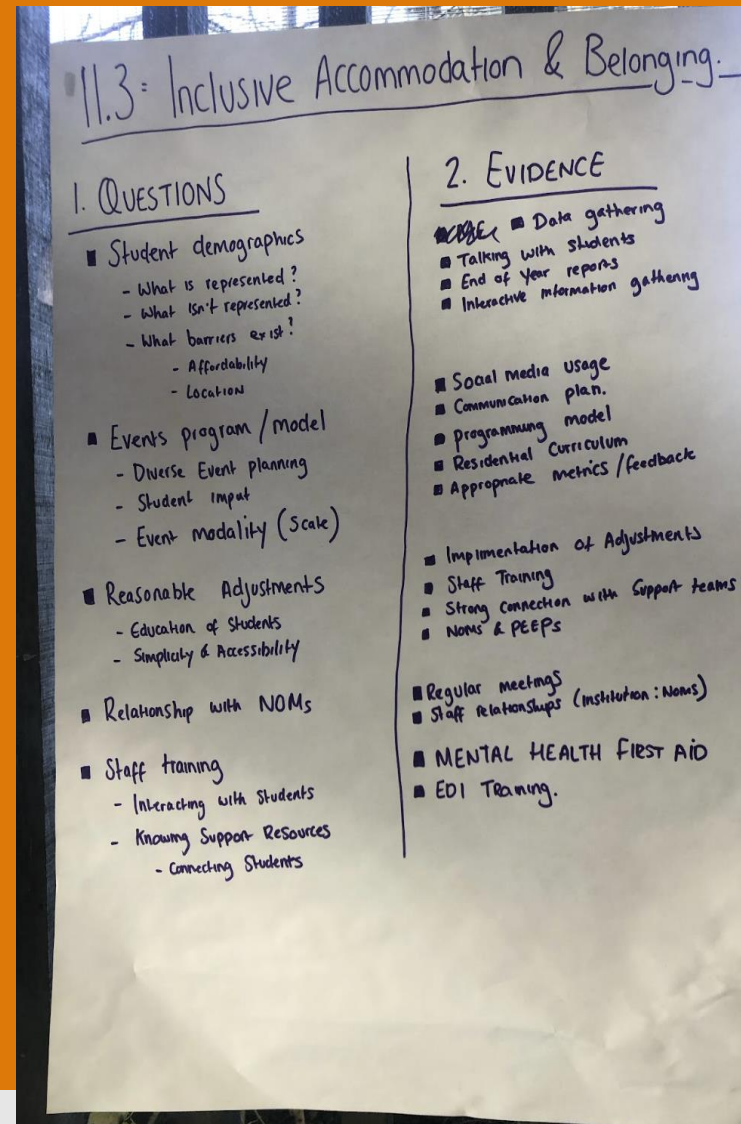 11.3: Inclusive Accommodation & Belonging.
1. QUESTIONS
■ Student demographics
- What is represented?
- What isn't represented?
- What barriers exist?
- Affordability
- Location
■ Events program / model
- Diverse Event planning
- Student input
- Event modality (Scale)
■ Reasonable Adjustments
- Education of Students
- Simplicity & Accessibility
■ Relationship with NOMs
■ Staff training
- Interacting with Students
- Knowing Support Resources
- Connecting Students
2. EVIDENCE
■ Data gathering
■ Talking with students
■ End of Year reports
■ Interactive information gathering
■ Social media usage
■ Communication plan.
■ programming model
■ Residential Curriculum
■ Appropriate metrics / feedback
■ Implimentation of Adjustments
■ Staff Training
■ Strong connection with Support teams
■ NOMs & PEEPs
■ Regular meetings
■ Staff relationships (institution : NOMs)
■ MENTAL HEALTH FIRST AID
■ EDI Training.